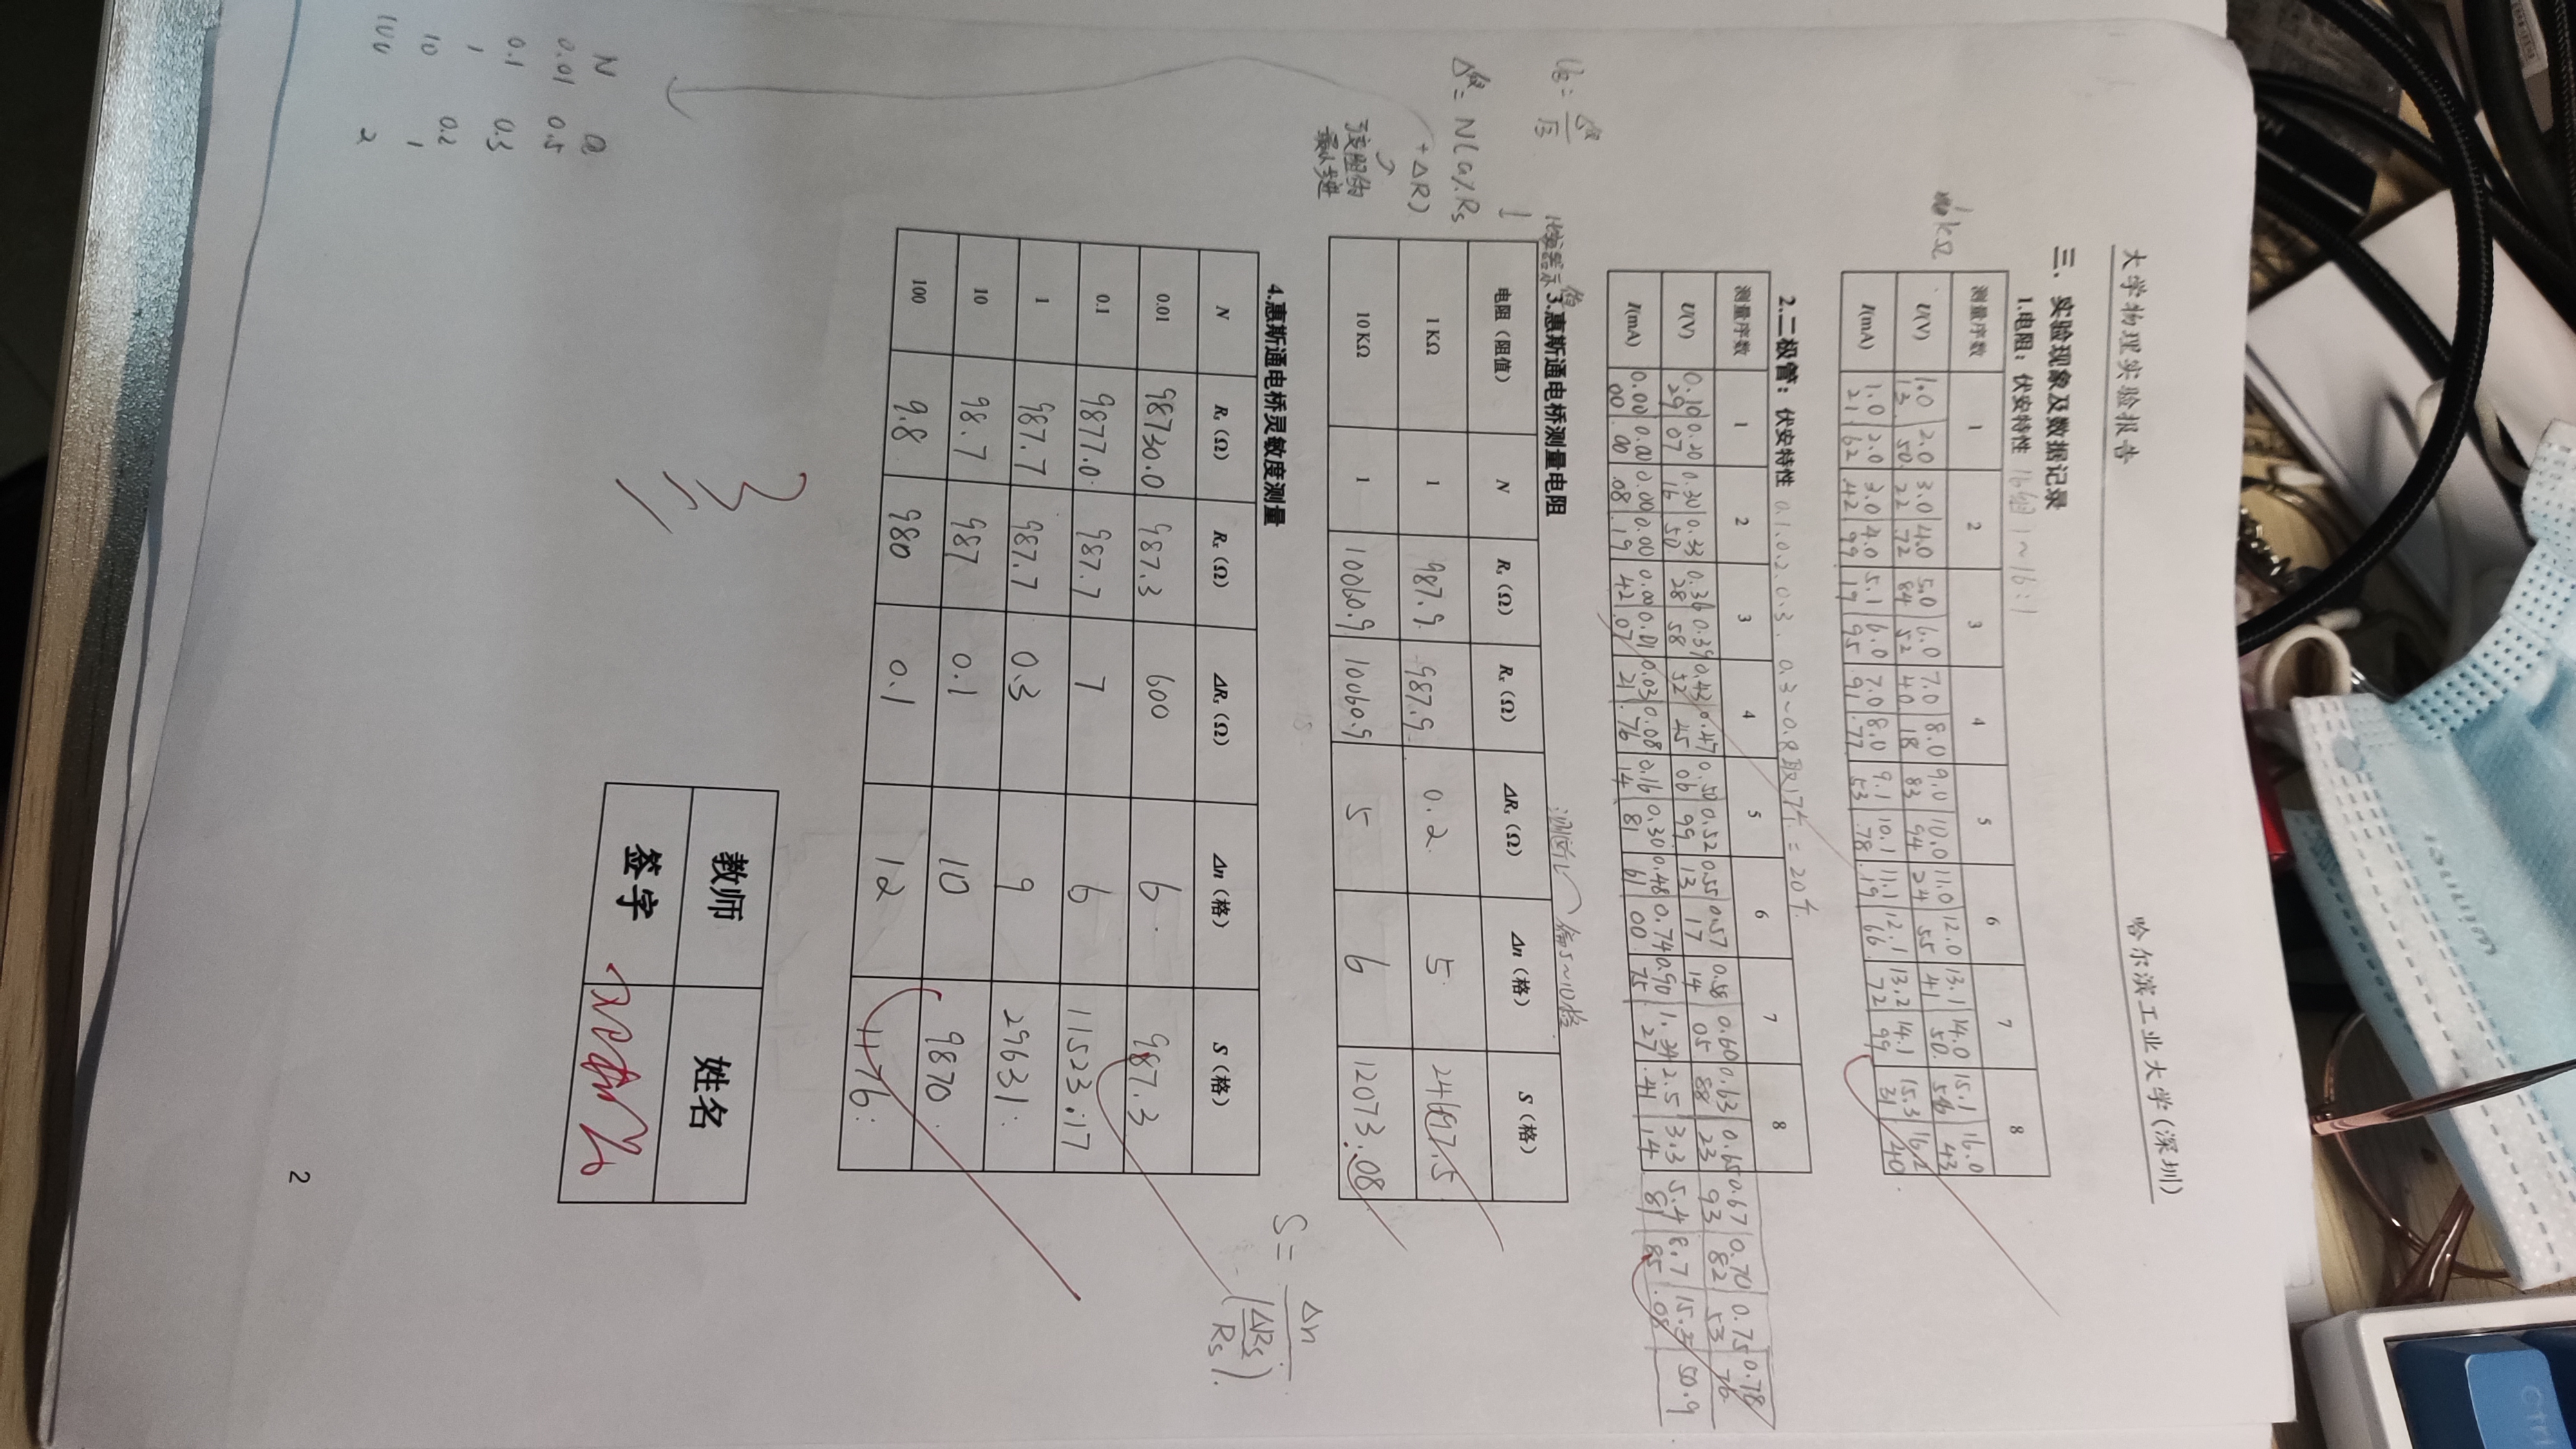 Ctrl
大学物理实验报告 哈尔滨工业大学(深圳)
三. 实验现象及数据记录
1.电阻：伏安特性 16组 1~16:1
测量序数 1 2 3 4 5 6 7 8
kΩ
U(V) 1.013 2.050 3.022 4.072 5.084 6.052 7.040 8.018 9.083 10.094 11.024 12.055 13.141 14.050 15.156 16.043
I(mA) 1.021 2.062 3.042 4.099 5.119 6.095 7.091 8.077 9.153 10.178 11.119 12.166 13.272 14.199 15.331 16.240
2.二极管：伏安特性 0.1.0.2.0.3. 0.3~0.8取17个 = 20个
测量序数 1 2 3 4 5 6 7 8
U(V) 0.1029 0.2007 0.3016 0.3350 0.3628 0.3958 0.4352 0.4745 0.5006 0.5299 0.5513 0.5717 0.5814 0.6005 0.6388 0.6523 0.6793 0.7082 0.7553 0.7876
I(mA) 0.0000 0.0000 0.0008 0.0019 0.0042 0.0107 0.0321 0.0876 0.1614 0.3081 0.4861 0.7400 0.9075 2.541 3.314 5.481 8.785 50.9
U_B = Δ仪/√3
3.惠斯通电桥测量电阻 偏5~10格
电阻（阻值） N Rs（Ω） Rx（Ω） ΔRs（Ω） Δn（格） S（格）
Δ仪 = N(a%Rs + ΔR)
1 KΩ 1 987.9 987.9 0.2 5 24697.5
10 KΩ 1 10060.9 10060.9 5 6 12073.08
变阻的
最小步进
4.惠斯通电桥灵敏度测量
S = Δn/(ΔRs/Rs)
N Rs（Ω） Rx（Ω） ΔRs（Ω） Δn（格） S（格）
0.01 98730.0 987.3 600 6 987.3
0.1 9877.0 987.7 7 6 11523.17
1 987.7 987.7 0.3 9 29631
10 98.7 987 0.1 10 9870
100 9.8 980 0.1 12 1176
教师 姓名
签字
N a
0.01 0.5
0.1 0.3
1 0.2
10 1
100 2
2